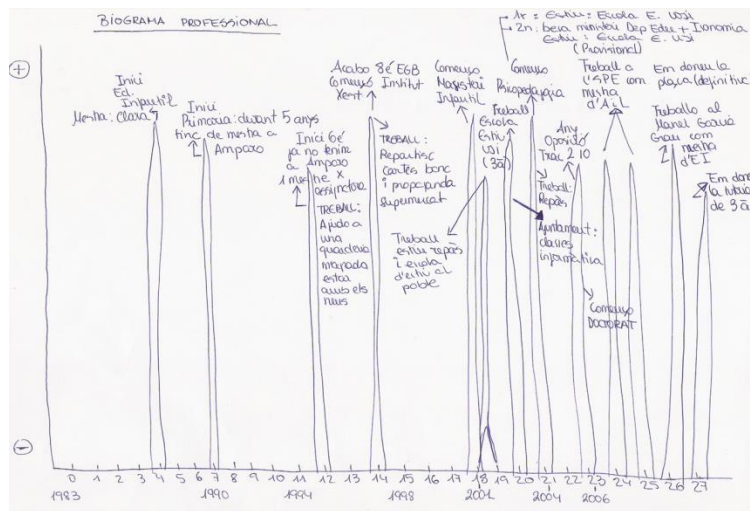 BIOGRAMA PROFESSIONAL
1r = Estiu: Escola E. USI
2n: beca ministeri Dep Edu + Economia
Estiu: Escola E. USI
(Provisional)
+
Inici
Ed.
Infantil
Mestra: Clara
Inici
Primaria: durant 5 anys
tinc de mestra a
Amparo
Inici 6é
ja no tenim
a Amparo
1 mestre x
assignatura
TREBALL:
Ajudo a
una
mapada
estar
amb els
neus
Acabo 8é EGB
Començo Institut
Xest
TREBALL:
Repartisc
cartes banc
i propaganda
supermercat
Començo
Magisteri
Infantil
Treball
Escola
Estiu
USI
(3a)
Treball
estiu repàs
i escola
d'estiu al
poble
Començo
Psicopedagogia
Any
Oposició
Trac 2 10
Treball:
Repàs
Ajuntament:
classes
informàtica
Començo
DOCTORAT
Treball a
l'SPE com
mestra
d'AiL
Em donen la
plaça (definitiva)
Treballo al
Manel Garcia
Grau com
mestra
d'EI
Em donen
la tutoria
de 3a
-
0 1 2 3 4 5 6 7 8 9 10 11 12 13 14 15 16 17 18 19 20 21 22 23 24 25 26 27
1983 1990 1994 1998 2001 2004 2006